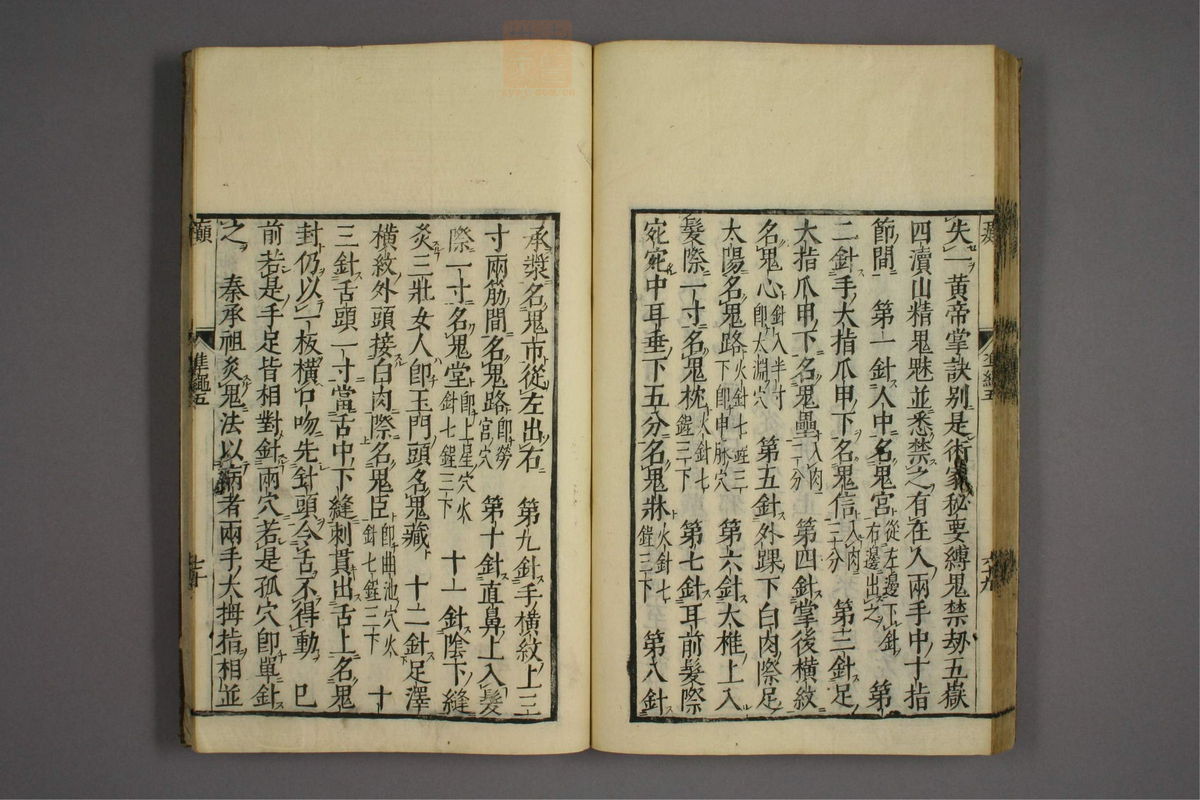 失一黃帝掌訣别是術家秘要縛鬼禁劫五嶽
四瀆山精鬼魅並悉禁之有在人兩手中十指
節間　第一針人中名鬼宮從左邊下針右邊出之　第
二針手大指爪甲下名鬼信入肉三分　第三針足
大指爪甲下名鬼壘入肉二分　第四針掌後橫紋
名鬼心針入半寸即太淵穴　第五針外踝下白肉際足
太陽名鬼路火針七鍟三下即申脉穴　第六針大椎上入
髮際一寸名鬼枕火針七鍟三下　第七針耳前髮際
宛宛中耳垂下五分名鬼牀火針七鍟三下　第八針
承漿名鬼市從左出右　第九針手橫紋上三
寸兩筋間名鬼路即勞宮穴　第十針直鼻上入髮
際一寸名鬼堂即上星穴火針七鍟三下　十一針陰下縫
灸三壯女人即玉門頭名鬼藏　十二針足澤
橫紋外頭接白肉際名鬼臣即曲池穴火針七鍟三下　十
三針舌頭一寸當舌中下縫刺貫出舌上名鬼
封仍以一板橫口吻先針頭令舌不得動　巳
前若是手足皆相對針兩穴若是孤穴即單針
之　秦承祖灸鬼法以病者兩手大拇指相並
準繩五
七十